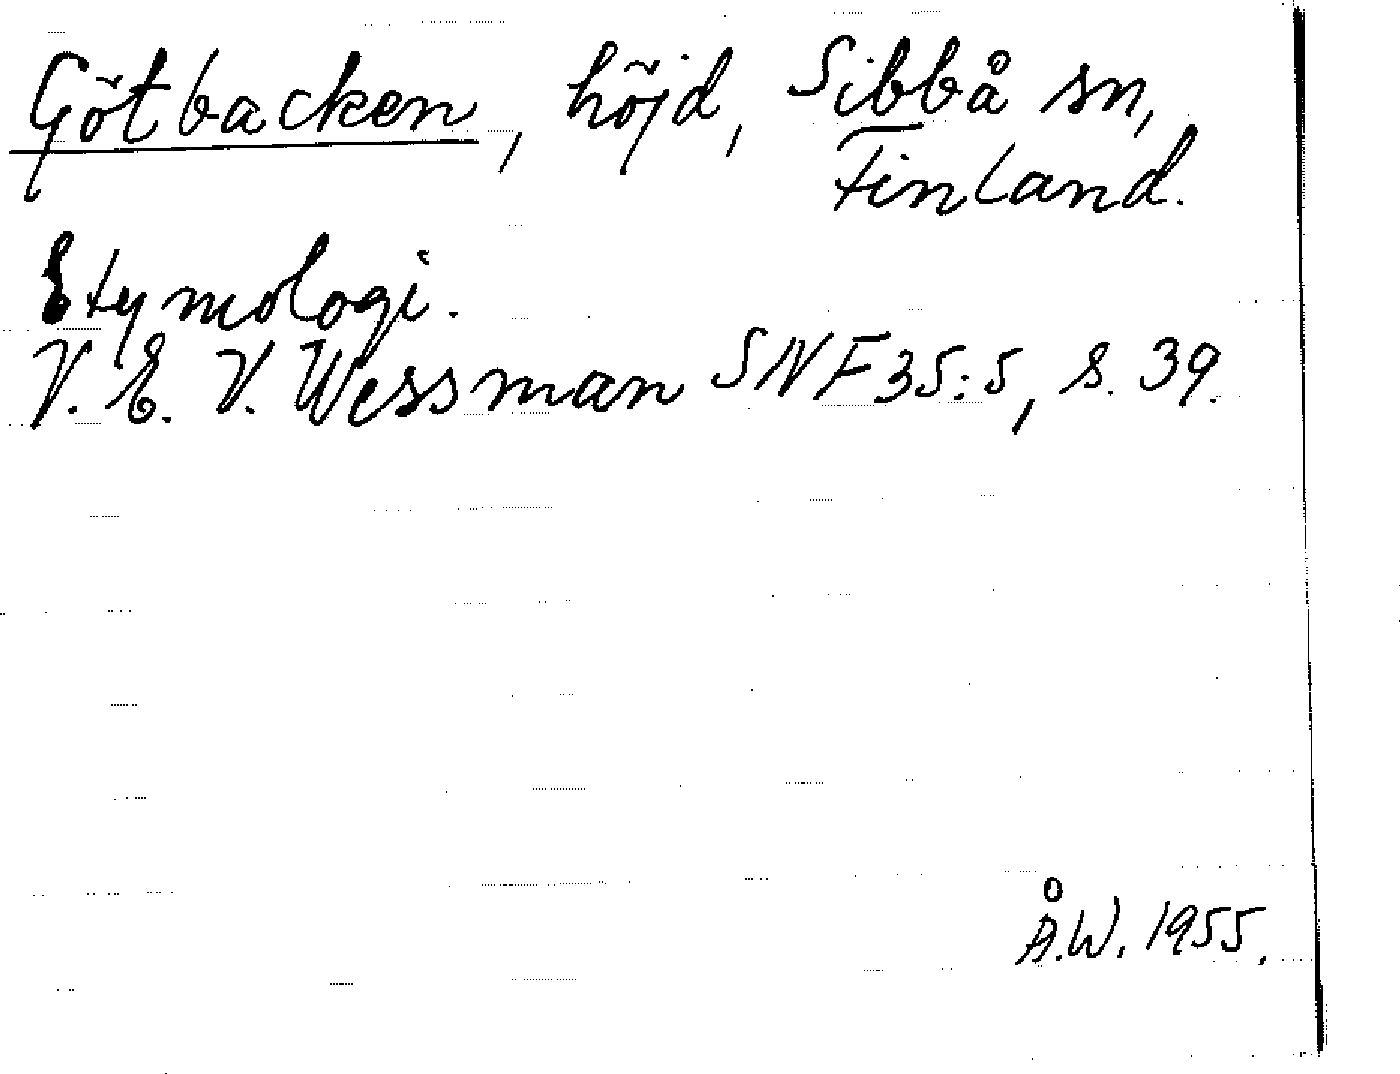 Götbacken, höjd, Sibbå sn,
Finland.
Etymologi.
V. E. V. Wessman SNF 35:5, s. 39.
Å.W. 1955.